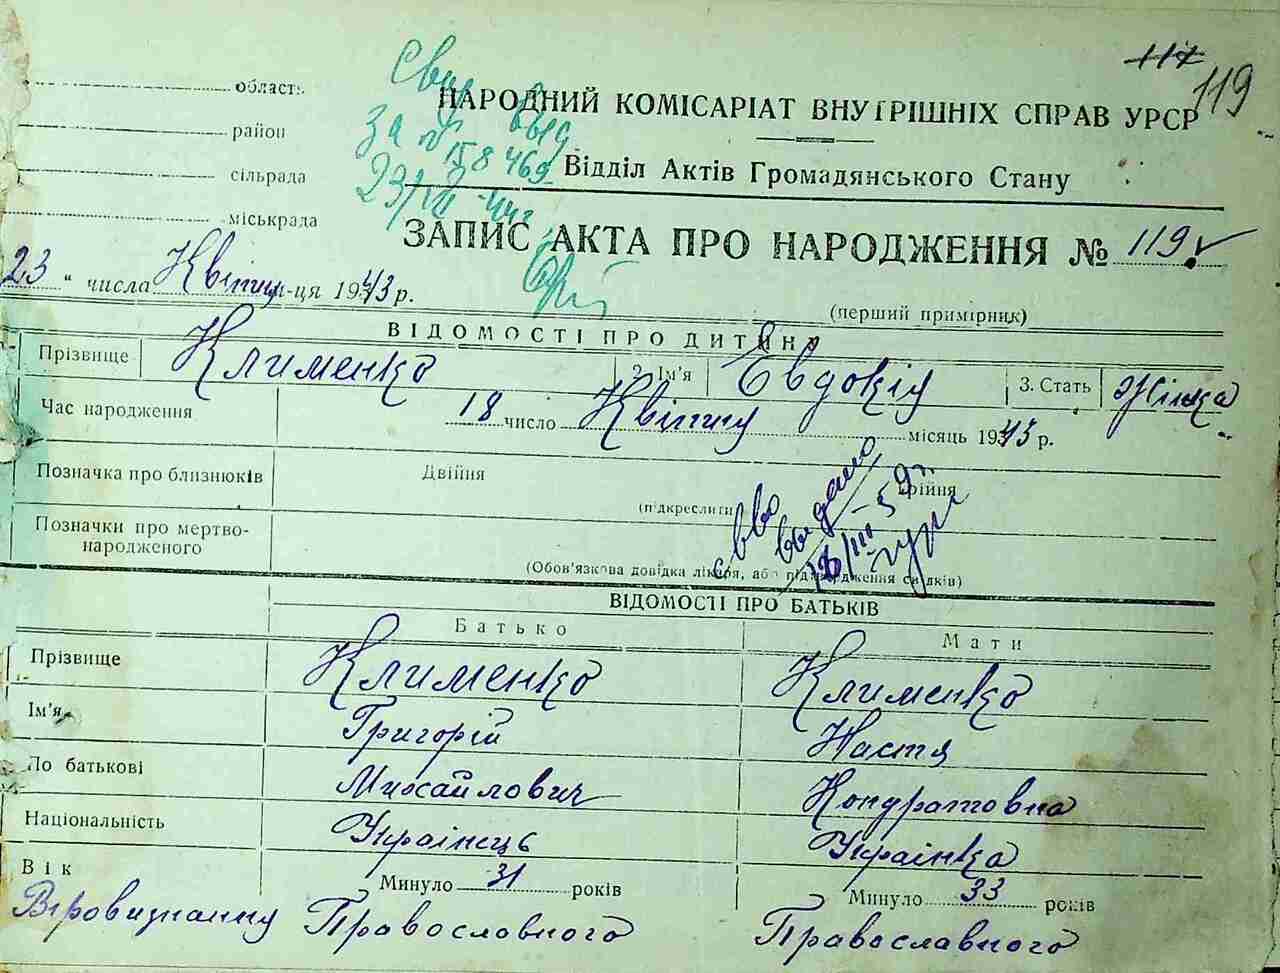 117 119
област.
район
сільрада
міськрада
НАРОДНИЙ КОМІСАРІАТ ВНУТРІШНІХ СПРАВ УРСР
Відділ Актів Громадянського Стану
за №
158469
23/VII-44г
ЗАПИС АКТА ПРО НАРОДЖЕННЯ № 119
23 " числа Квітня м-ця 1943 р.
(перший примірник)
ВІДОМОСТІ ПРО ДИТИНУ
Прізвище Клименко 2. Ім'я Евдокія 3. Стать Жінка
Час народження 18 число Квітня місяць 1943 р.
Позначка про близнюків Двійня трійня
(підкреслити)
Позначки про мертво-
народженого
(Обов'язкова довідка лікаря, або підтвердження свідків)
выдано
18/III-59г.
ВІДОМОСТІ ПРО БАТЬКІВ
Батько Мати
Прізвище Клименко Клименко
Ім'я Григорій Настя
По батькові Михайлович Кондратовна
Національність Украінець Украінка
Вік Минуло 31 років Минуло 33 років
Віровизнання Православного Православного